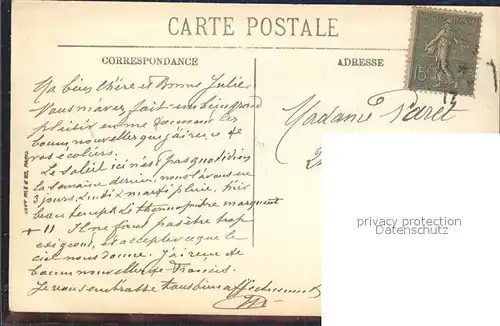 CARTE POSTALE
CORRESPONDANCE
ADRESSE
Ma bien Chère et Bonne Julie
Vous m'avez fait un bien grand
plaisir en me donnant ces
bonnes nouvelles que j'ai reçue de
vos écoliers.
Le soleil ici n'est pas quotidien
la semaine dernière nous l'avons eu
3 jours Lundi & mardi pluie.
beau temps le thermomètre marquent
+ 11 Il ne faut pas être trop
exigeant et accepter ce que le
ciel nous donne. J'ai reçu de
bonnes nouvelles de Francis.
Je vous embrasse tous bien affectueusement
Madame Paret
15
LEVY FILS & CIE PARIS
privacy protection
Datenschutz